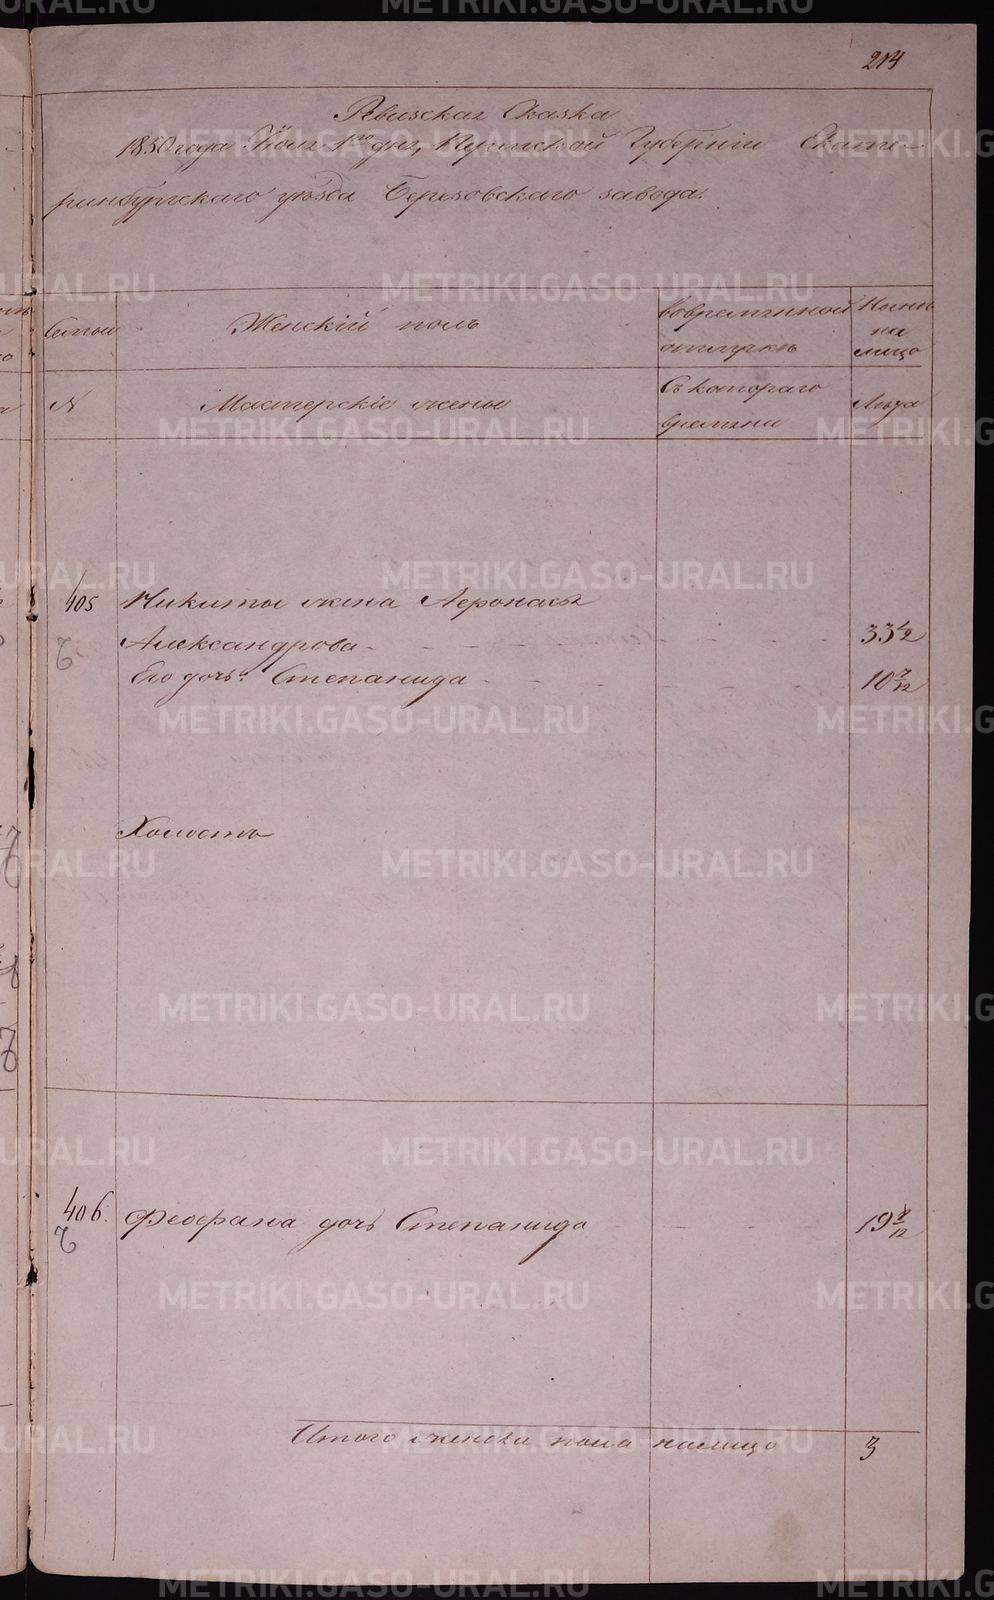 214
Ревизская Сказка
1850 года Июля 1го дня, Пермской Губерніи Екате-
ринбургскаго уѣзда Березовскаго завода.
Семьи
Женскій полъ
Во временной
отлучкѣ
Нынѣ
на
лицо
N
Мастерскіе жены
Съ котораго
времени
Лѣта
405
Никиты жена
Александрова
33 1/2
Его дочь: Степанида
10 7/12
Холостъ
406.
дочь Степанида
19 7/12
Итого женска пола налицо
3
METRIKI.GASO-URAL.RU